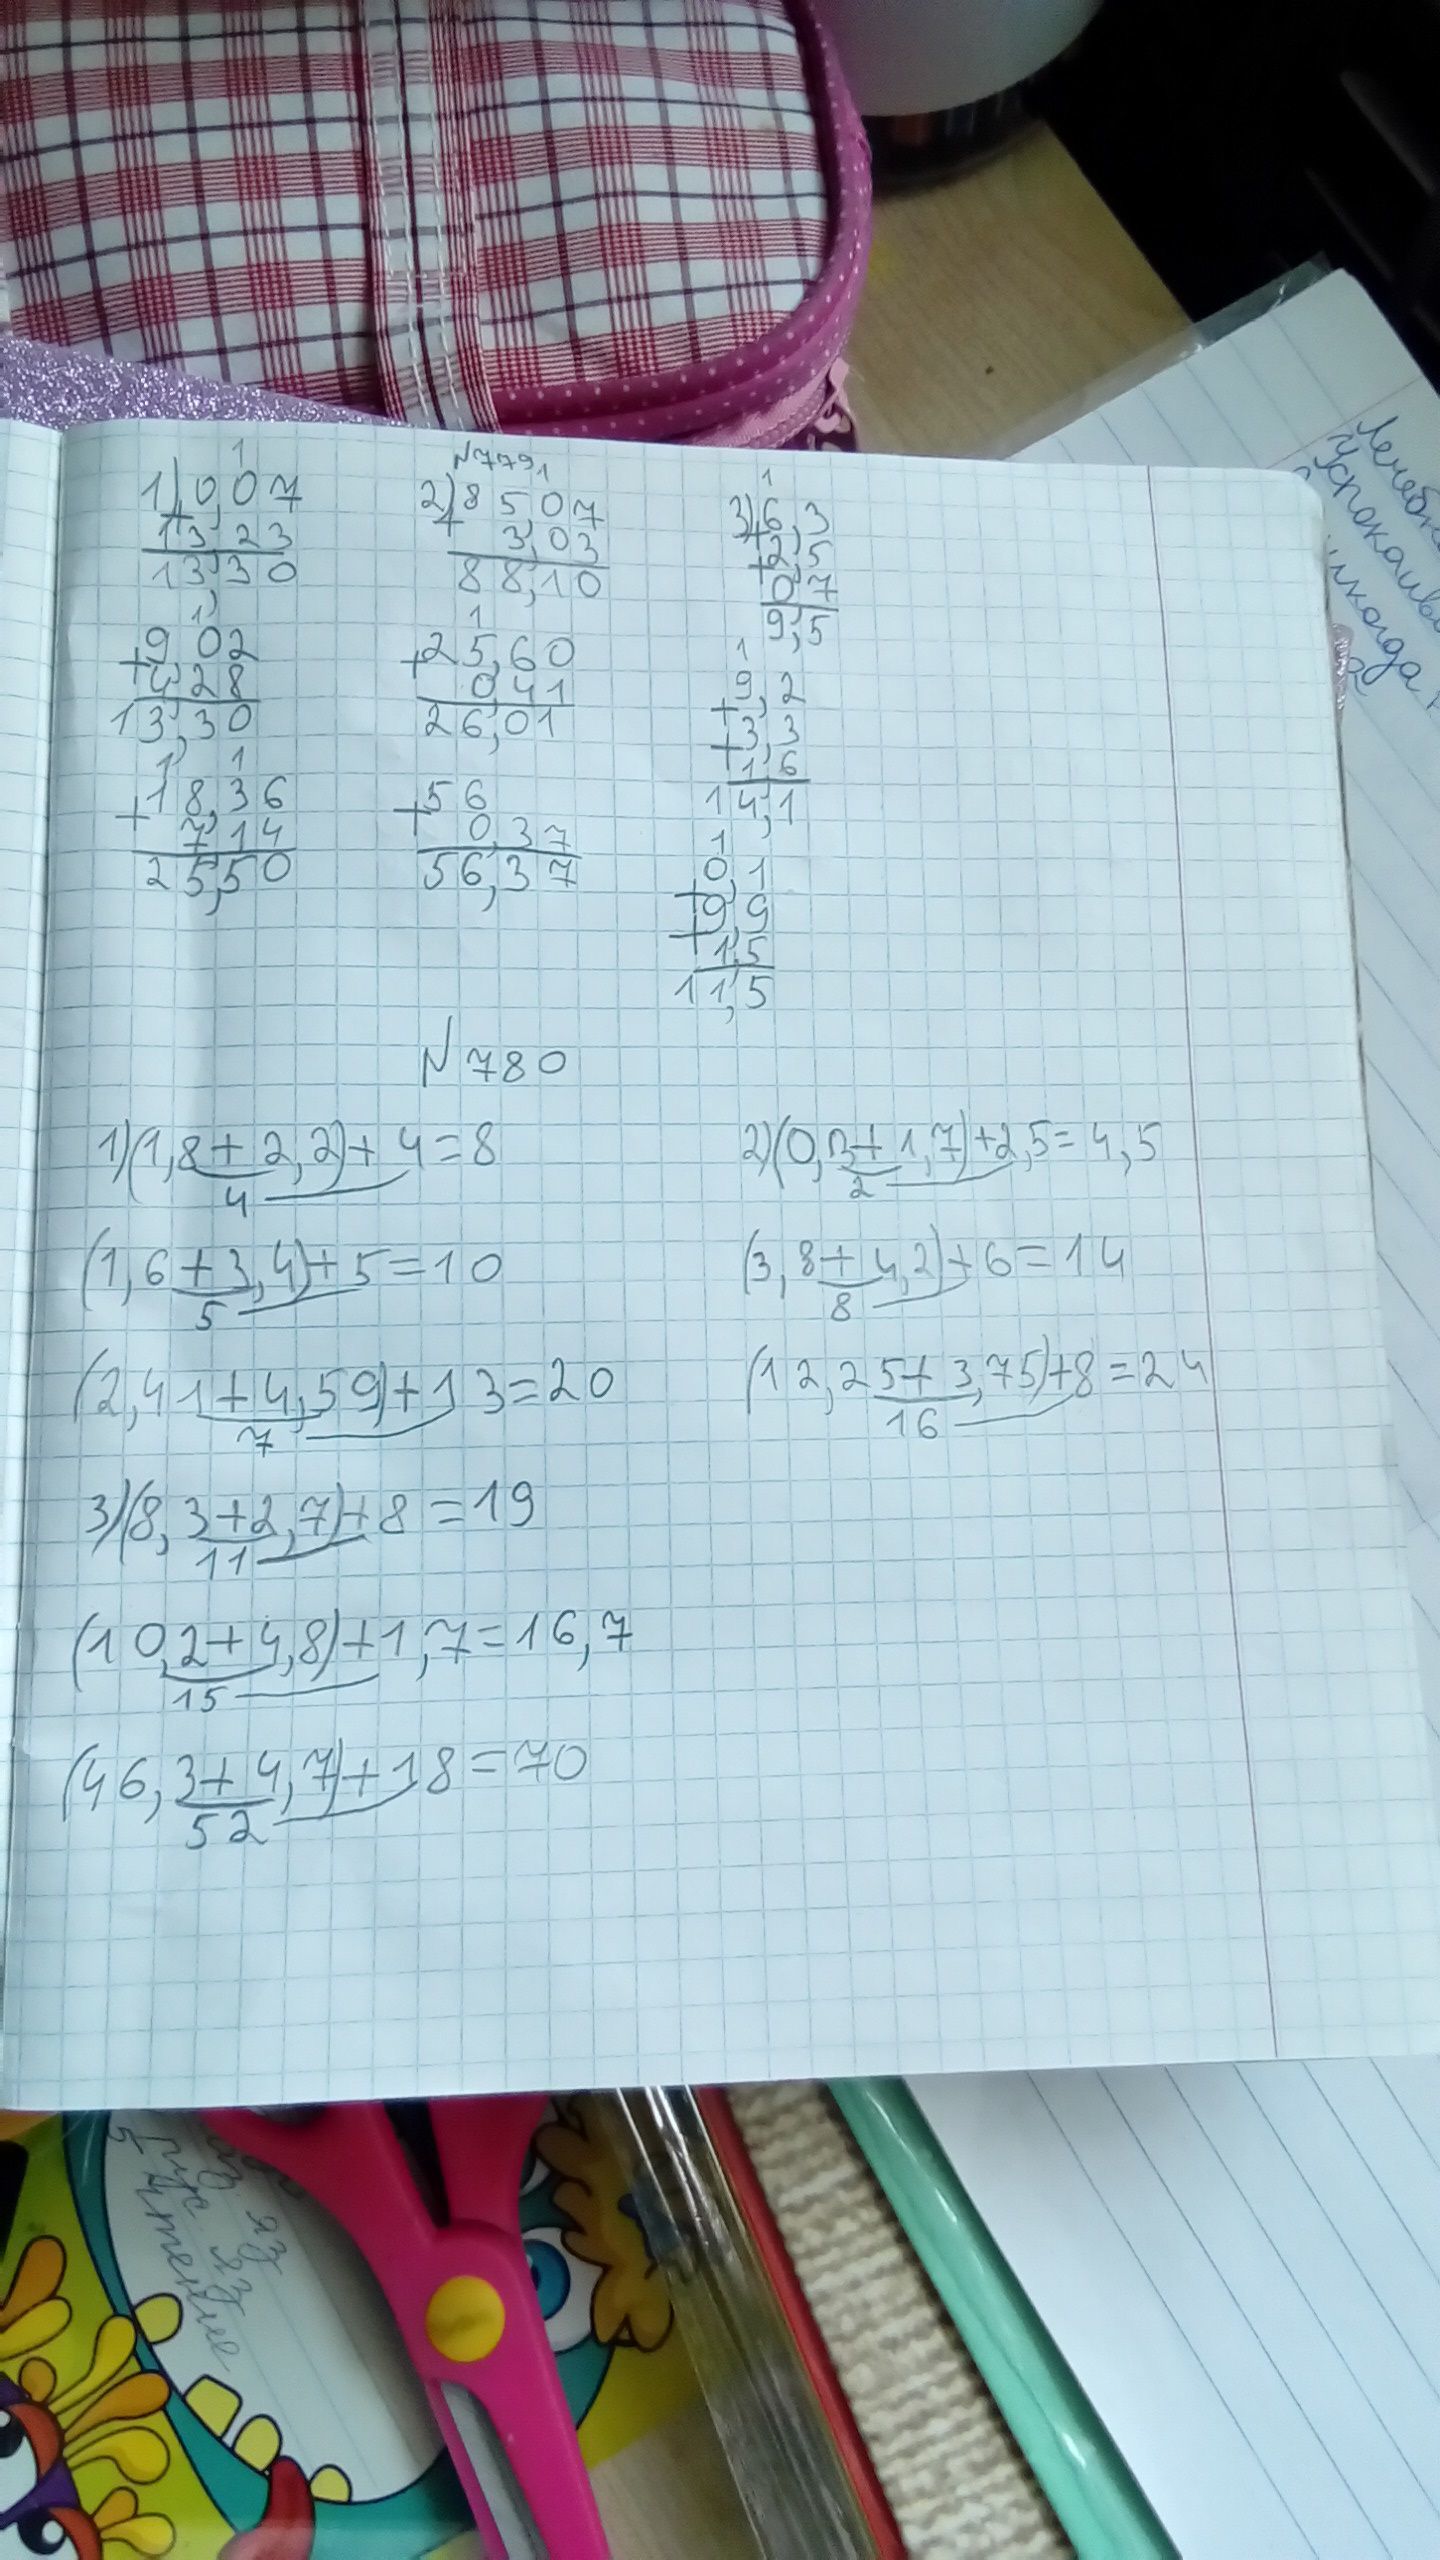 №779
1
1) 0,07
+
13,23
13,30
1
+9,02
4,28
13,30
1 1
+18,36
7,14
25,50
1
2) 85,07
+
3,03
88,10
1
+25,60
0,41
26,01
+56
0,37
56,37
1
3) 6,3
+
+2,5
0,7
9,5
1
9,2
+3,3
+1,6
14,1
1
0,1
+9,9
+1,5
11,5
№780
1) (1,8+2,2)+4=8
4
(1,6+3,4)+5=10
5
(2,41+4,59)+13=20
7
3) (8,3+2,7)+8=19
11
(10,2+4,8)+1,7=16,7
15
(46,3+4,7)+18=70
52
2) (0,3+1,7)+2,5=4,5
2
(3,8+4,2)+6=14
8
(12,25+3,75)+8=24
16
Лечебн
Успокаив
никогда